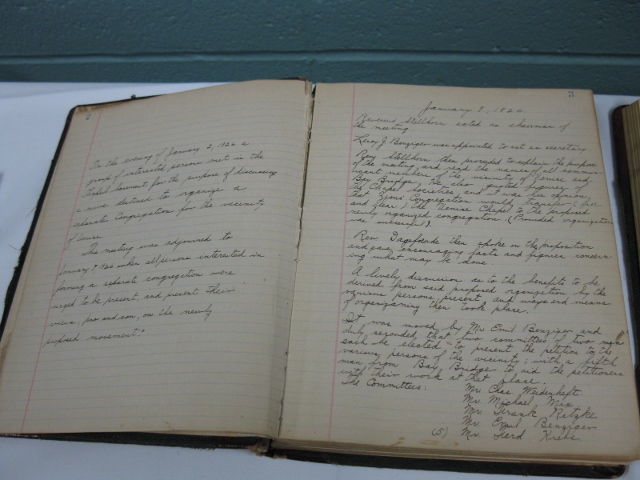 2
On the evening of January 2, 1922 a
group of interested persons met in the
for the purpose of discussing
a desired to organize a
separate Congregation for the vicinity
of
The meeting was adjourned to
January 9, 1922 when all persons interested in
forming a separate congregation were
urged to be present and present their
views, pro and con, on the newly
proposed movement.
3
January 9, 1922
Reverend Stellhorn acted as chairman of
the meeting
Leroy J. Benziger was appointed to act as secretary
Rev Stellhorn then proceeded to explain the purpose
of the meeting and read the names of all communicant
members of the vicinity of and
Bay Bridge. He also quoted figures of
the Chapel Societies and S.S. (the opinion
that Zion's Congregation would transfer (her
and place) the Venice Chapel to the proposed
newly organized congregation (Provided organization
was
Rev. then spoke on the proposition
and gave encouraging facts and figures concern-
ing what may be done
A lively discussion as to the benefits to be
derived from said proposed organization by the
various persons present, and ways and means
of organizing then took place.
It was moved by Mr. Emil Benziger and
duly seconded, that two committees of two men
each be elected to present the petition to the
various persons of the vicinity, with a fifth
man from Bay Bridge to aid the petitioners
with their work at that place.
The Committees: Mr. Chas Weidenheft
Mr. Michael Nix
Mr. Frank Ritzke
Mr. Emil Benziger
(5) Mr. Ferd Krebs